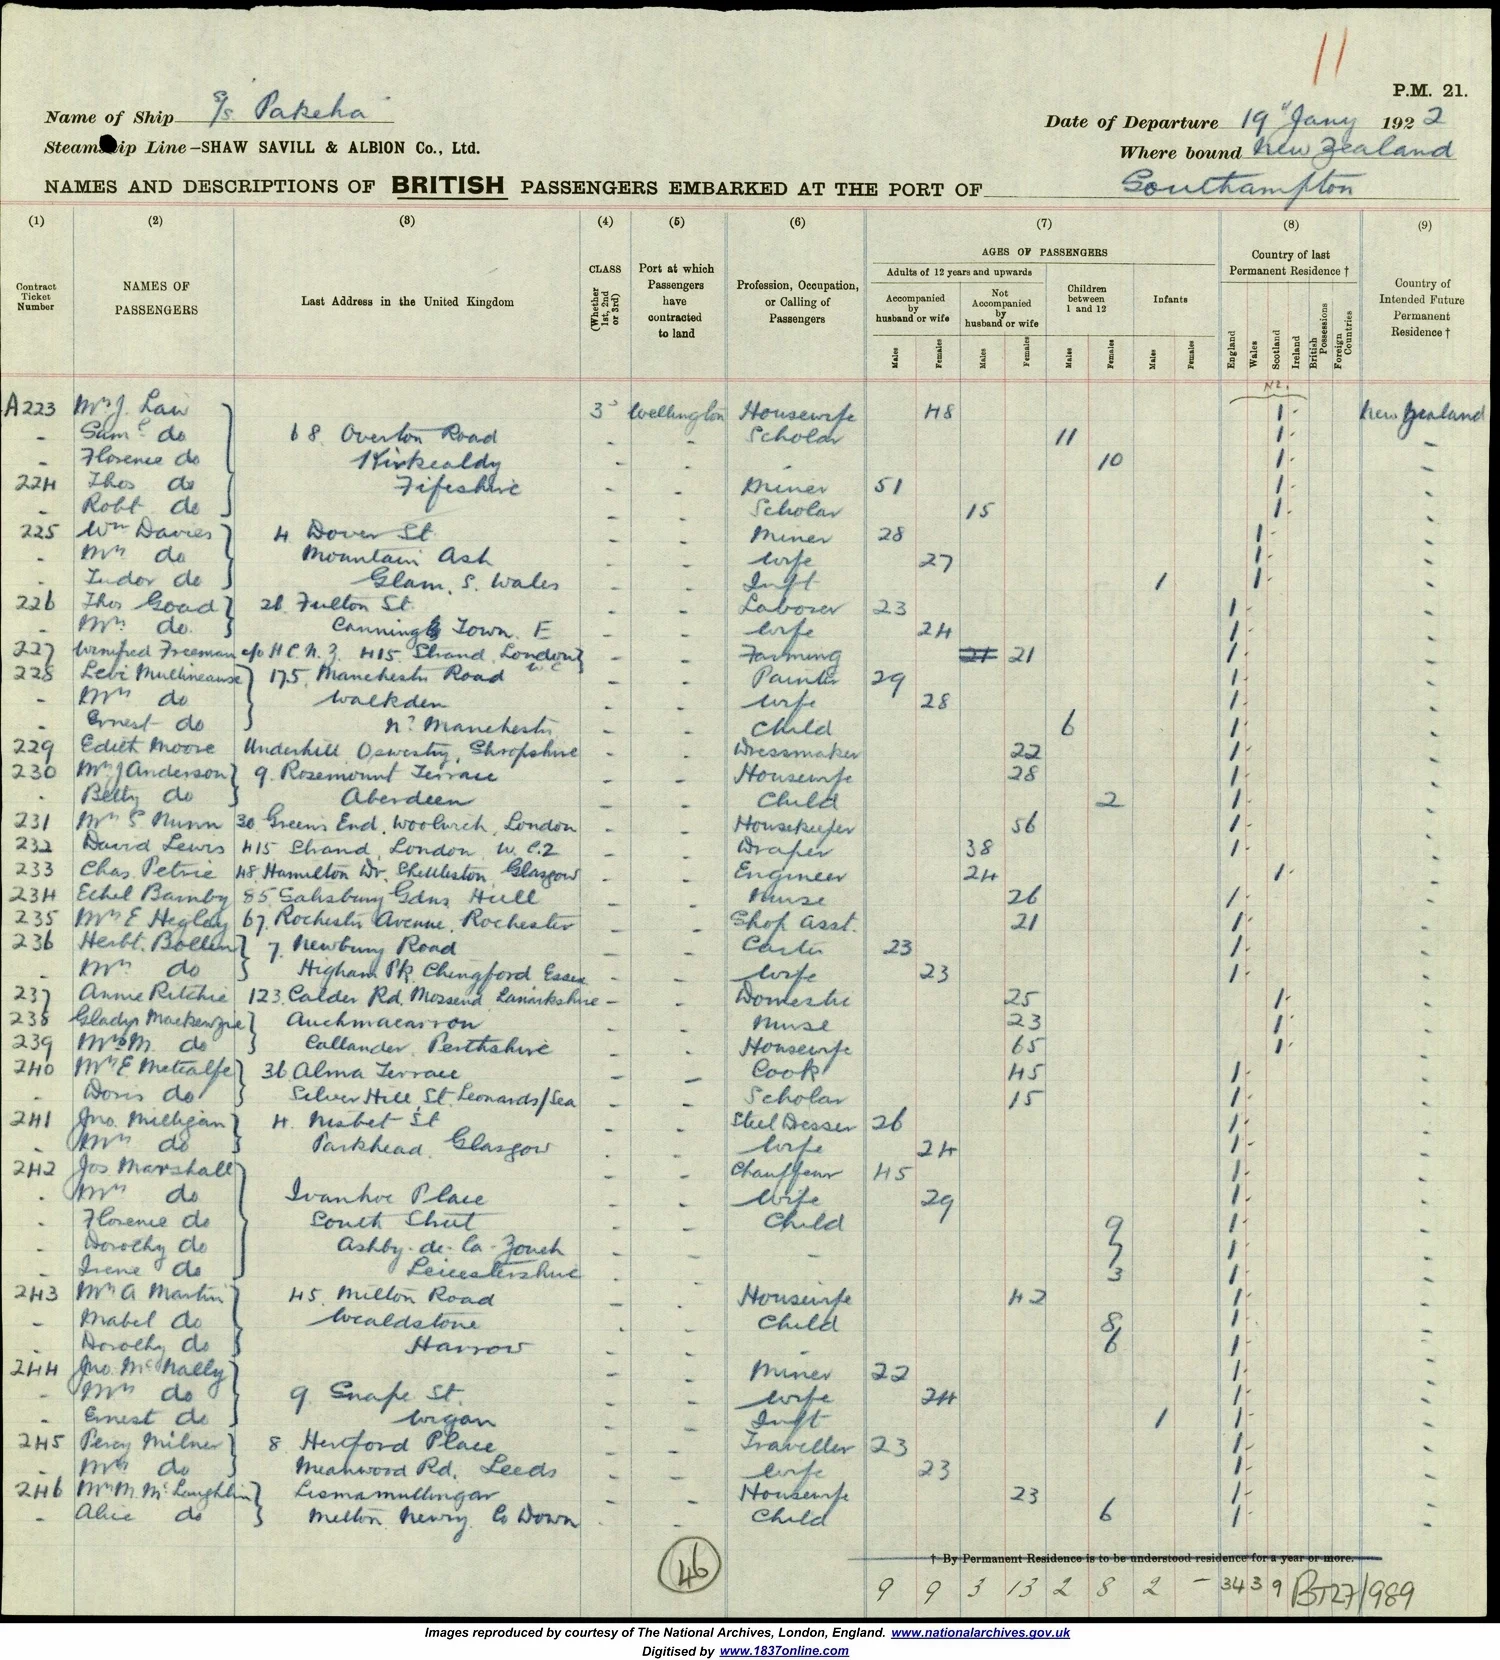 11
P.M. 21.
Name of Ship S/S "Pakeha"
Date of Departure 19" Jany 1922
Steamship Line – SHAW SAVILL & ALBION Co., Ltd.
Where bound New Zealand
NAMES AND DESCRIPTIONS OF BRITISH PASSENGERS EMBARKED AT THE PORT OF Southampton
(1) (2) (3) (4) (5) (6) (7) (8) (9)
Contract Ticket Number
NAMES OF PASSENGERS
Last Address in the United Kingdom
CLASS (Whether 1st, 2nd or 3rd)
Port at which Passengers have contracted to land
Profession, Occupation, or Calling of Passengers
AGES OF PASSENGERS
Adults of 12 years and upwards
Accompanied by husband or wife
Not Accompanied by husband or wife
Children between 1 and 12
Infants
Males Females Males Females Males Females Males Females
Country of last Permanent Residence †
England Wales Scotland Ireland British Possessions Foreign Countries
Country of Intended Future Permanent Residence †
A223 Mrs J. Law 3 Wellington Housewife 48 1 New Zealand
- Saml do 68 Overton Road - - Scholar 11 1 -
- Florence do Kirkcaldy - - - 10 1 -
224 Thos do Fifeshire - - Miner 51 1 -
- Robt do - - Scholar 15 1 -
225 Wm Davies 4 Dover St - - Miner 28 1 -
- Mrs do Mountain Ash - - Wife 27 1 -
- Tudor do Glam. S. Wales - - Inft 1 1 -
226 Thos Goad 26 Fulton St - - Laborer 23 1 -
- Mrs do Canning Town. E - - Wife 24 1 -
227 Winifred Freeman c/o H.C.N.Z. 415 Strand London WC - - Farming 21 21 1 -
228 Levi Mullineause 175 Manchester Road - - Painter 29 1 -
- Mrs do Walkden - - Wife 28 1 -
- Ernest do Nr Manchester - - Child 6 1 -
229 Edith Moore Underhill Oswestry, Shropshire - - Dressmaker 22 1 -
230 Mrs J Anderson 9. Rosemount Terrace - - Housewife 28 1 -
- Betty do Aberdeen - - Child 2 1 -
231 Mrs S. Nunn 30 Greens End, Woolwich, London - - Housekeeper 56 1 -
232 David Lewis 415 Strand, London W.C.2 - - Draper 38 1 -
233 Chas. Petrie 48 Hamilton Dr. Shettleston Glasgow - - Engineer 24 1 -
234 Ethel Barnby 85 Salisbury Gdns Hull - - Nurse 26 1 -
235 Mrs E Heglay 67. Rochester Avenue. Rochester - - Shop Asst. 21 1 -
236 Herbt. Bollen 7. Newbury Road - - Carter 23 1 -
- Mrs do Higham Pk Chingford Essex - - Wife 23 1 -
237 Annie Ritchie 123. Calder Rd. Mossend Lanarkshire - - Domestic 25 1 -
238 Gladys Mackenzie Auchmacarron - - Nurse 23 1 -
239 Mrs M. do Callander, Perthshire - - Housewife 65 1 -
240 Mrs E Metcalfe 36 Alma Terrace - - Cook 45 1 -
- Doris do Silver Hill St. Leonards/Sea - - Scholar 15 1 -
241 Jno. Milligan 4. Nisbet St - - Steel Dresser 26 1 -
- Mrs do Parkhead. Glasgow - - Wife 24 1 -
242 Jos Marshall - - Chauffeur 45 1 -
- Mrs do Ivanhoe Place - - Wife 29 1 -
- Florence do South Street - - Child 9 1 -
- Dorothy do Ashby-de-la-Zouch - - - 7 1 -
- Irene do Leicestershire - - 3 1 -
243 Mrs A Martin 45. Milton Road - - Housewife 42 1 -
- Mabel do Wealdstone - - Child 8 1 -
- Dorothy do Harrow - - - 6 1 -
244 Jno. McNally - - Miner 22 1 -
- Mrs do 9 Snape St. - - Wife 24 1 -
- Ernest do Wigan - - Inft 1 1 -
245 Percy Milner 8 Hertford Place - - Traveller 23 1 -
- Mrs do Meanwood Rd. Leeds - - Wife 23 1 -
246 Mrs M. McLoughlin Lismamullingar - - Housewife 23 1 -
- Alice do Melton Newry. Co Down - - Child 6 1 -
46
† By Permanent Residence is to be understood residence for a year or more.
9 9 3 13 2 8 2 - 34 3 9 BT27/989
Images reproduced by courtesy of The National Archives, London, England. www.nationalarchives.gov.uk
Digitised by www.1837online.com